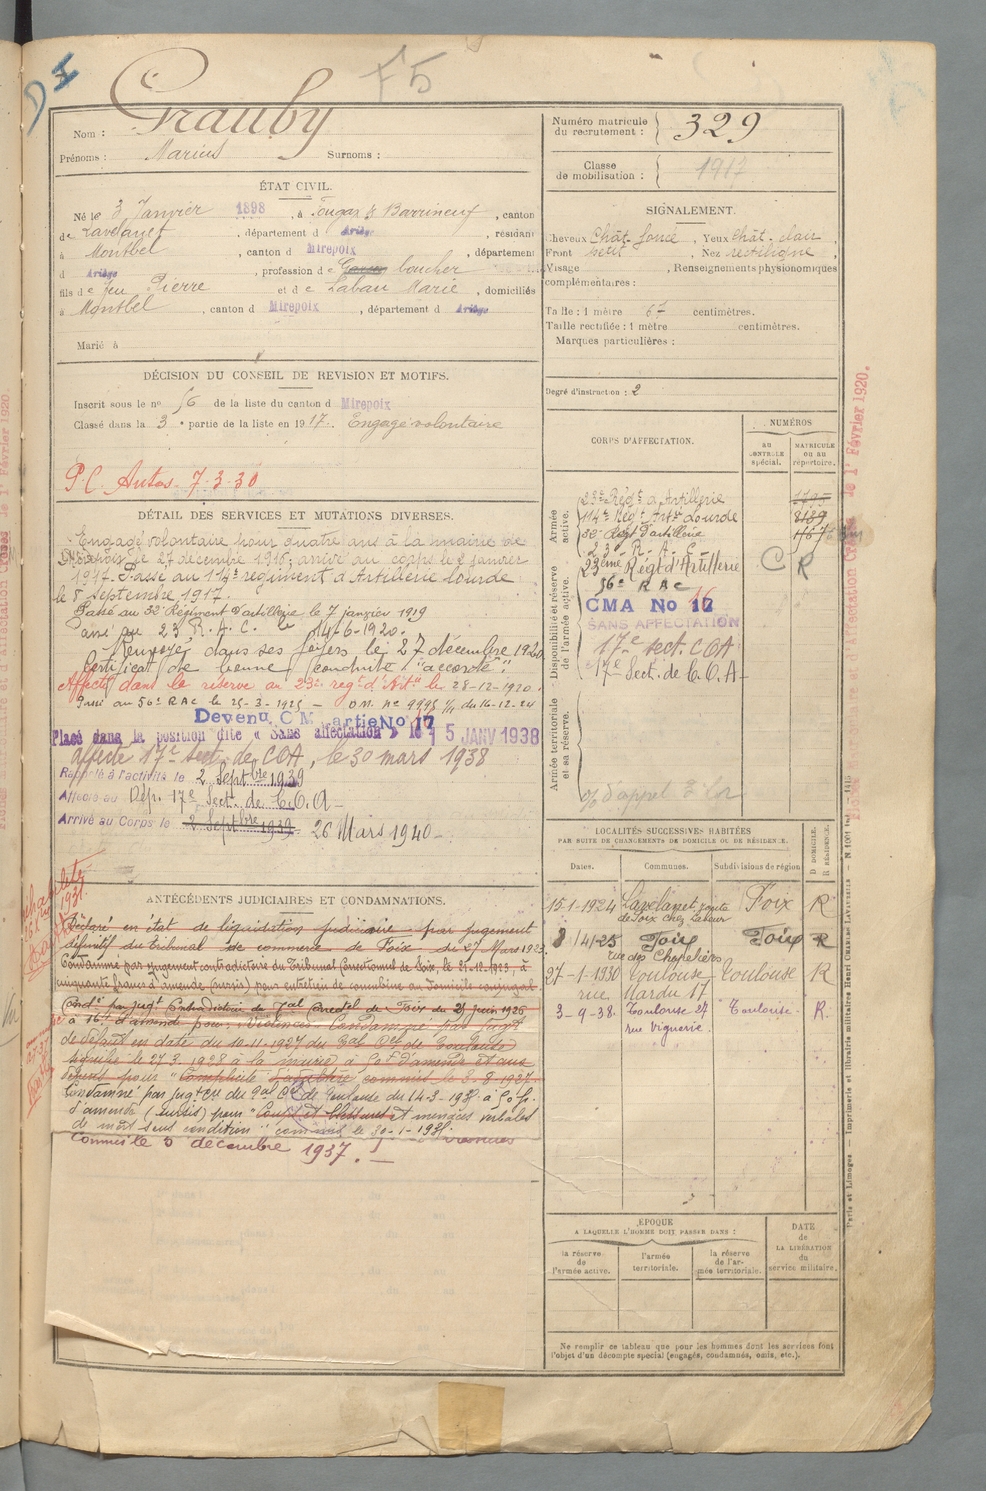 F5
Grauby
Nom :
Prénoms : Marius Surnoms :
ÉTAT CIVIL.
Né le 3 Janvier 1898, à Barrineuf, canton
de Lavelanet, département d Ariège, résidant
à Montbel, canton d Mirepoix, département
d Ariège, profession de boucher
fils de feu Pierre et de Laban Marie, domiciliés
à Montbel, canton d Mirepoix, département d Ariège
Marié à
DÉCISION DU CONSEIL DE REVISION ET MOTIFS.
Inscrit sous le no 56 de la liste du canton d Mirepoix
Classé dans la 3e partie de la liste en 1917. Engagé volontaire
P.C. Autos. 7.3.30
DÉTAIL DES SERVICES ET MUTATIONS DIVERSES.
Engagé volontaire pour quatre ans à la mairie de
le 27 décembre 1916; arrivé au corps le 2 janvier
1917. Passé au 114e régiment d'Artillerie lourde
le 8 Septembre 1917.
Passé au 32e Régiment d'artillerie le 7 janvier 1919
Passé au 23 R.A.C. le 14-6-1920.
Renvoyé dans ses foyers le 27 décembre 1920
Certificat de bonne conduite "accordé".
Affecté dans la réserve au 23e regt d'Artie le 28-12-1920.
Passé au 56e RAC le 25-3-1925 - O.M. No 9995 1/1 du 16-12-24
Devenu C M artie No 17
Placé dans la position dite « Sans affectation » le 15 JANV 1938
affecté 17e sect. de COA, le 30 mars 1938
Rappelé à l'activité le 2 Septbre 1939
Affecté au Dép. 17e Sect. de C.O.A -
Arrivé au Corps le 2 Septbre 1939 - 26 Mars 1940 -
ANTÉCÉDENTS JUDICIAIRES ET CONDAMNATIONS.
Déclaré en état de liquidation judiciaire par jugement
définitif du tribunal de commerce de Foix du 27 Mars 1923
Condamné par jugement contradictoire du Tribunal Correctionnel de Foix le 21-12-1923 à
cinquante francs d'amende (sursis) pour entretien de concubine au domicile conjugal
Condé par jugt Contradictoire du al Correctel de Foix du 25 juin 1926
à 16 f. d'amende pour: Violences. Condamné par jugt
de défaut en date du 10-11-1927 du al Cel de Toulouse
signifié le 27-3-1928 à la mairie à 50 f d'amende et aux
dépens pour "Complicité d'adultère commis le 3-8-1927.
Condamné par jugt Ctre du al Cel de Toulouse du 14-3-1938 à 50 f.
d'amende (sursis) pour "Coups et blessures et menaces verbales
de mort sous condition" commis le 30-1-1938.
Commis le 5 décembre 1937. -
Numéro matricule
du recrutement : 329
Classe
de mobilisation : 1917
SIGNALEMENT.
Cheveux Chât. foncé, Yeux Chât. clair,
Front petit, Nez rectiligne,
Visage , Renseignements physionomiques
complémentaires :
Taille : 1 mètre 67 centimètres.
Taille rectifiée : 1 mètre centimètres.
Marques particulières :
Degré d'instruction : 2
CORPS D'AFFECTATION.
NUMÉROS
au contrôle spécial.
MATRICULE ou au répertoire.
Armée active.
23e Régt d'Artillerie
114e Régt Artie Lourde 8189
32e Régt d'artillerie
23e R.A.C.
Disponibilité et réserve de l'armée active.
23ème Régt d'Artillerie C R
56e RAC
CMA No 17
SANS AFFECTATION
17e sect. COA
17e Sect. de C.O.A -
Armée territoriale et sa réserve.
LOCALITÉS SUCCESSIVES HABITÉES
PAR SUITE DE CHANGEMENTS DE DOMICILE OU DE RÉSIDENCE.
D DOMICILE. R RÉSIDENCE.
Dates. Communes. Subdivisions de région
15-1-1924 Lavelanet, route de Foix chez Laheur Foix R
8/4/25 Foix rue des Chapeliers Foix R
27-1-1930 Toulouse rue Nardu 17 Toulouse R
3-9-38 Toulouse 27 rue Viguerie. Toulouse. R.
ÉPOQUE
A LAQUELLE L'HOMME DOIT PASSER DANS :
DATE de LA LIBÉRATION du service militaire.
la réserve de l'armée active.
l'armée territoriale.
la réserve de l'armée territoriale.
Ne remplir ce tableau que pour les hommes dont les services font
l'objet d'un décompte spécial (engagés, condamnés, omis, etc.).
Paris et Limoges. — Imprimerie et librairie militaires Henri CHARLES-LAVAUZELLE